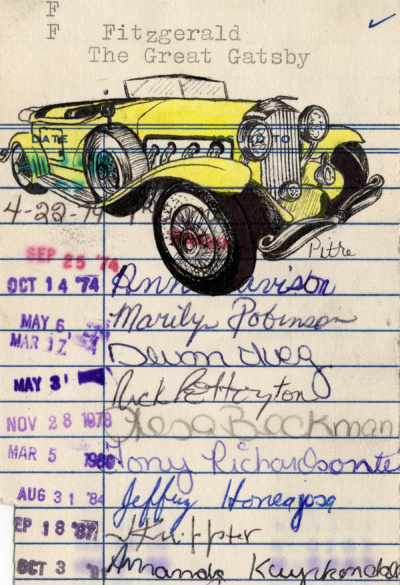 F
F Fitzgerald
The Great Gatsby
DATE ISSUED TO
4-22-74
Pitre
SEP 25 '74
OCT 14 '74 Ann Davison
MAY 6 Marilyn Robinson
MAR 17 Devon
MAY 3 Rick Hayton
NOV 28 1978 Resa Beckman
MAR 5 1980 Tony Richardson
AUG 31 '84 Jeffry
EP 18 '87
OCT 3 Amanda Kuykendall